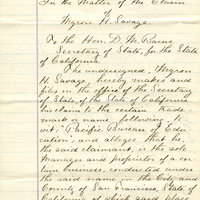 In the Matter of the Claim
of
Myron H. Savage.
To the Hon. D. M. Burns,
Secretary of State, for the State
of California.
The undersigned, Myron
H. Savage, hereby makes and
files in the office of the Secretary
of State, of the State of California
his claim to the certain Trade
mark or name following, to
wit: "Pacific Bureau of Edu-
cation", and alleges that he,
the said claimant, is the sole
Manager and proprietor of a cer-
tain business, conducted under
the said name in the City and
County of San Francisco, State of
California, at which said place